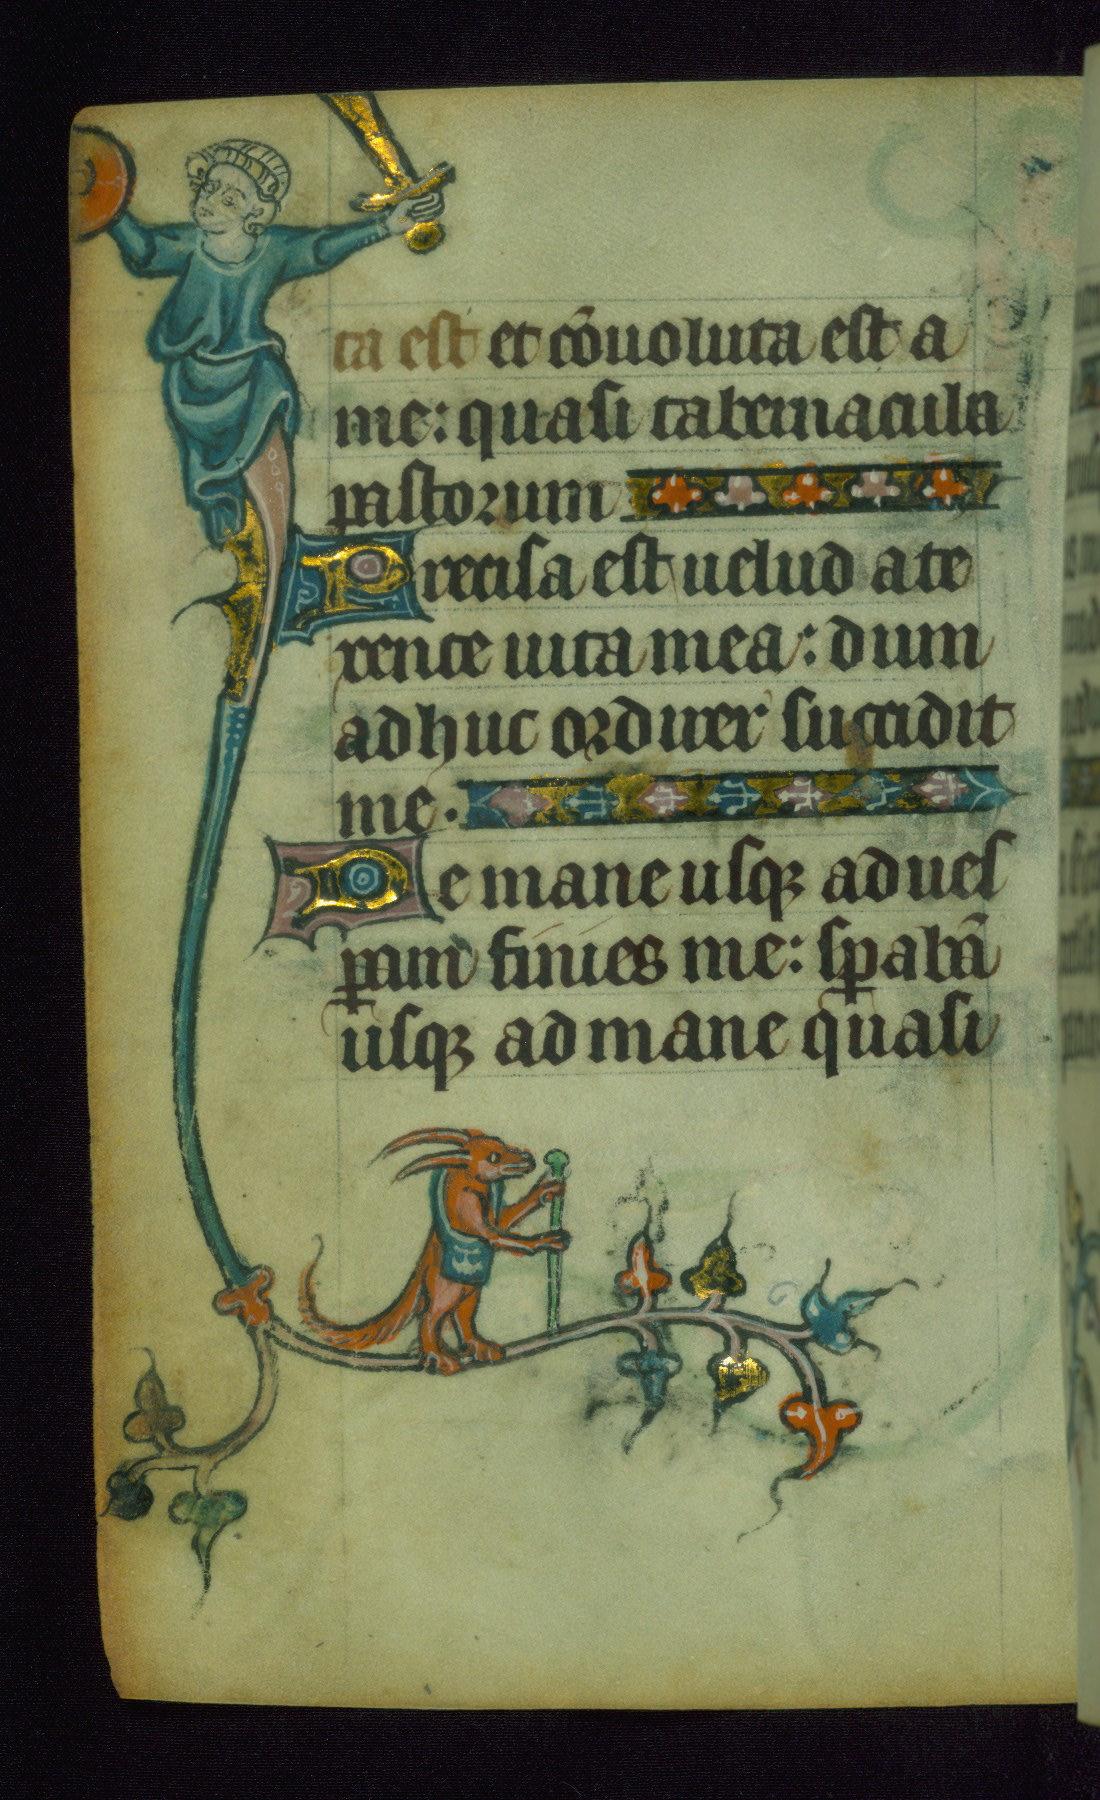 ta est et cōuoluta est a
me: quasi tabernacula
pastorum
Precisa est uelud a te
xente uita mea: dum
adhuc ordirer succidit
me.
De mane usqꝫ ad ues
ꝑam finies me: sꝑabā
usqꝫ ad mane quasi